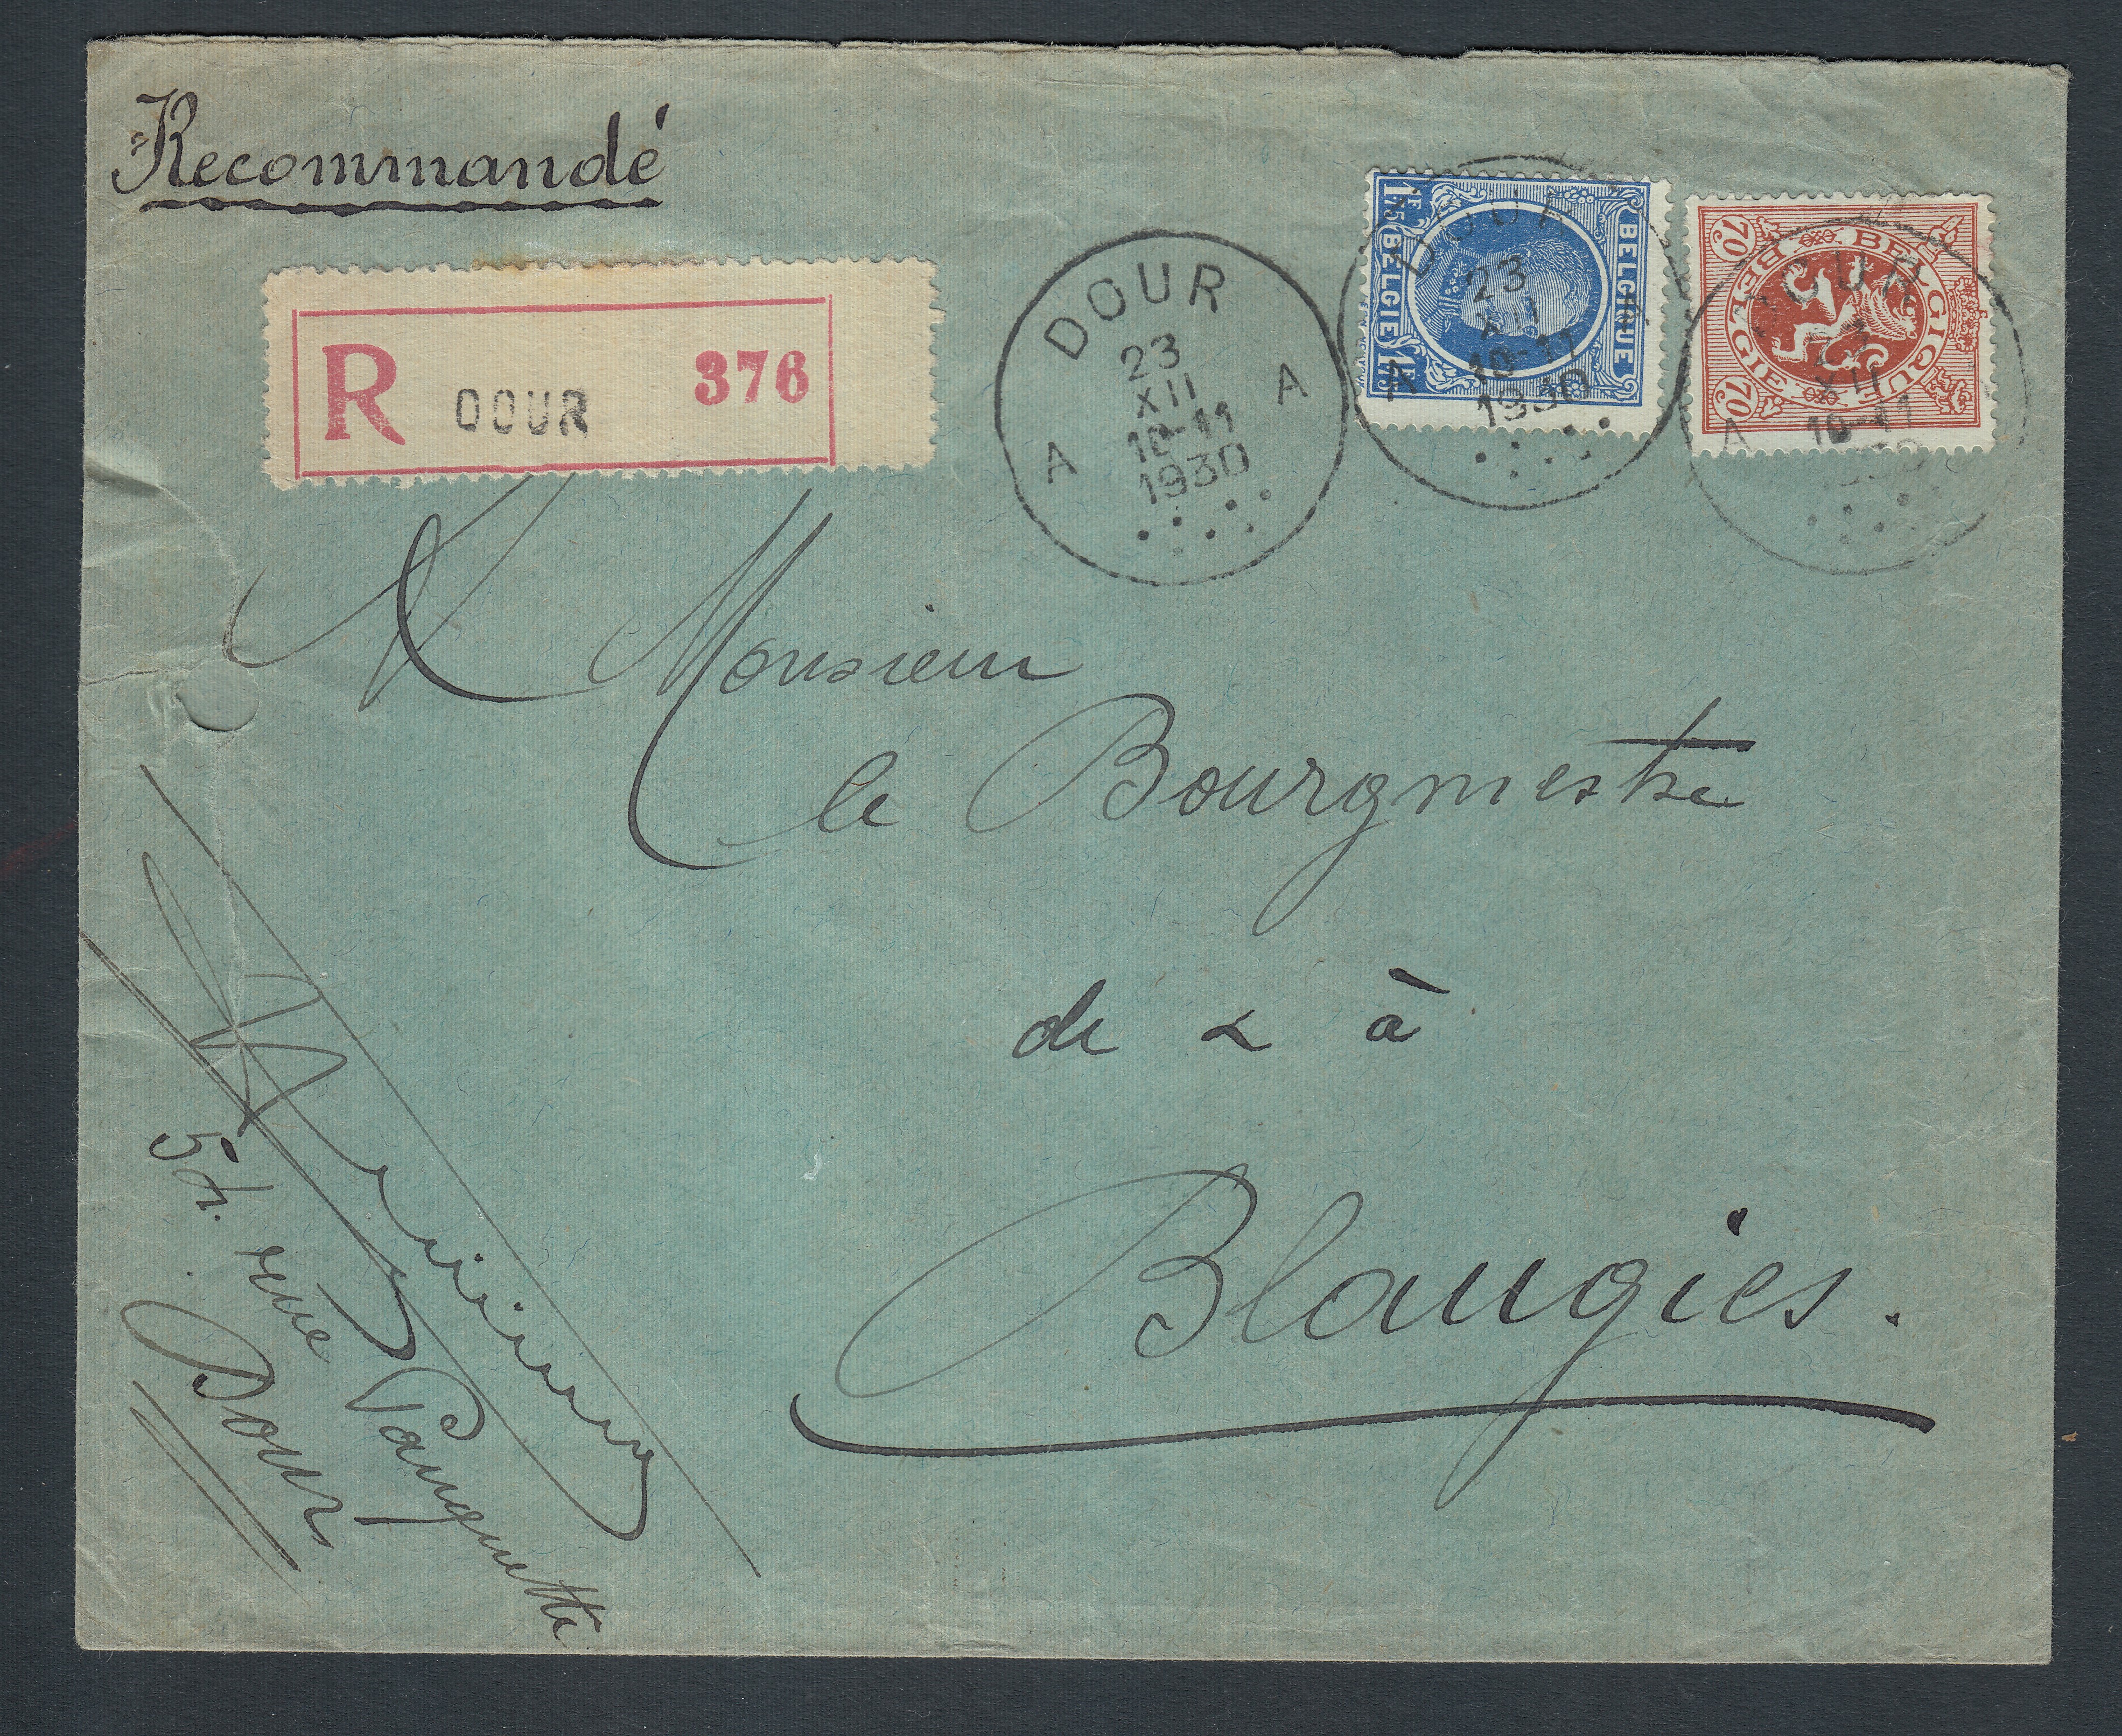 Recommandé
R DOUR 376
DOUR
23
XII
10-11
1930
A A
1F75 BELGIE 1F75
BELGIQUE
DOUR
23
XII
10-11
1930
A
70 BELGIQUE
BELGIE 70
DOUR
23
XII
10-11
A
A Monsieur
le Bourgmestre
de & à
Blaugies.
rue
Dour